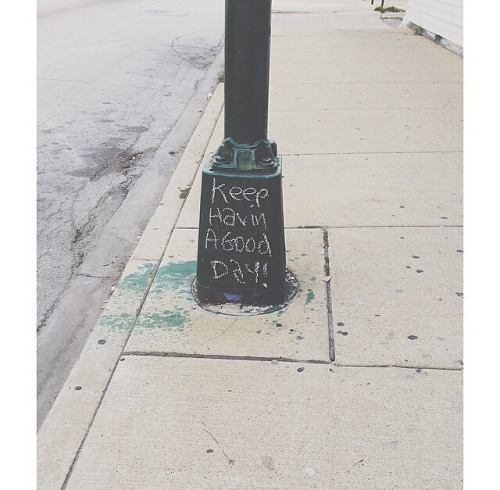 Keep
Havin
A Good
Day!